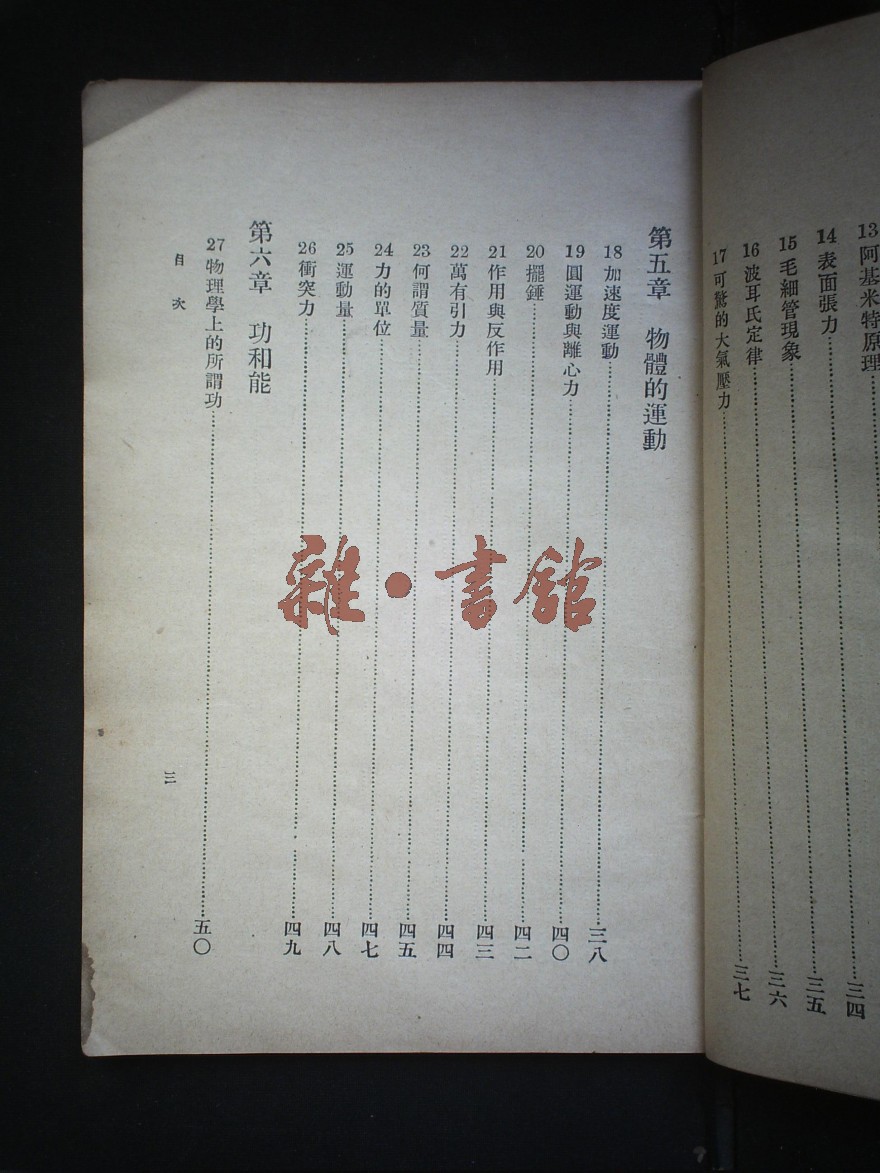 13 阿基米特原理……三四
14 表面張力……三五
15 毛細管現象……三六
16 波耳氏定律
17 可驚的大氣壓力……三七
第五章 物體的運動
18 加速度運動……三八
19 圓運動與離心力……四〇
20 擺錘……四二
21 作用與反作用……四三
22 萬有引力……四四
23 何謂質量……四五
24 力的單位……四七
25 運動量……四八
26 衝突力……四九
第六章 功和能
27 物理學上的所謂功……五〇
目次
三
雜·書館